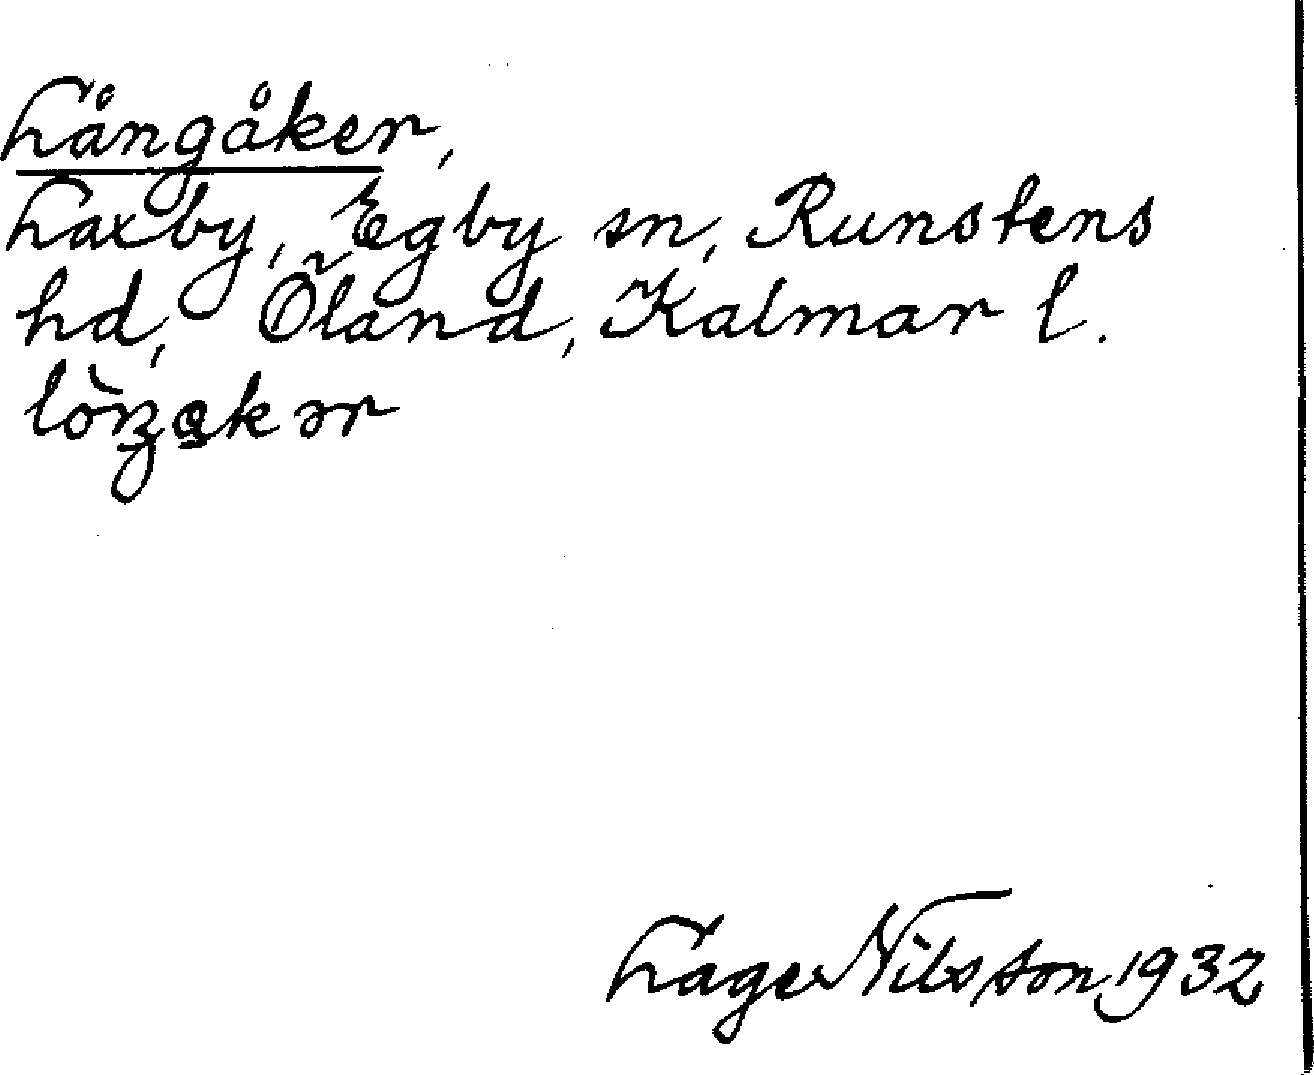 Långåker,
Laxby, Egby sn, Runstens
hd, Öland, Kalmar l.
lòŋạkər
Lage Nilsson, 1932